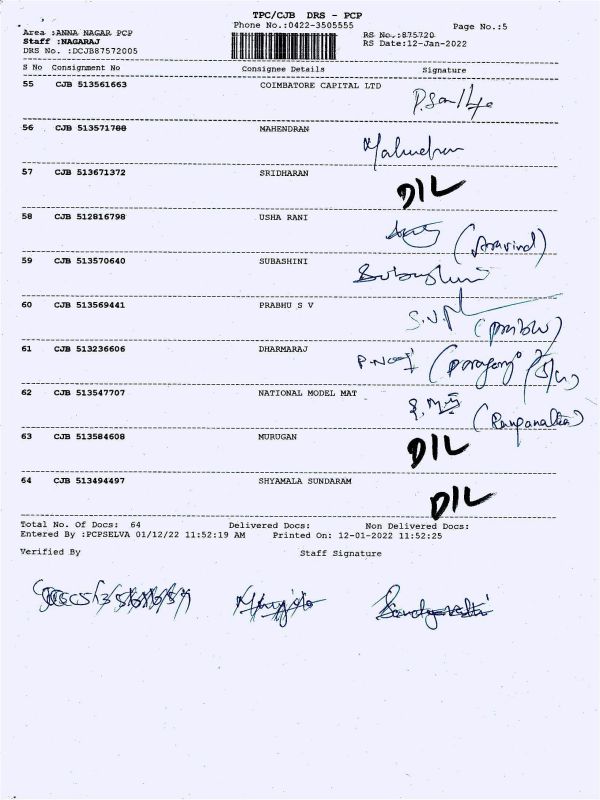 TPC/CJB DRS - PCP
Phone No.:0422-3505555
Page No.:5
Area :ANNA NAGAR PCP
Staff :NAGARAJ
DRS No. :DCJB87572005
RS No.:875720
RS Date:12-Jan-2022
S No Consignment No Consignee Details Signature
55 CJB 513561663 COIMBATORE CAPITAL LTD
56 CJB 513571788 MAHENDRAN Mahendran
57 CJB 513671372 SRIDHARAN D/L
58 CJB 512816798 USHA RANI (Aravind)
59 CJB 513570640 SUBASHINI Subashini
60 CJB 513569441 PRABHU S V S.V.P (prabhu)
61 CJB 513236606 DHARMARAJ
62 CJB 513547707 NATIONAL MODEL MAT
63 CJB 513584608 MURUGAN D/L
64 CJB 513494497 SHYAMALA SUNDARAM D/L
Total No. Of Docs: 64 Delivered Docs: Non Delivered Docs:
Entered By :PCPSELVA 01/12/22 11:52:19 AM Printed On: 12-01-2022 11:52:25
Verified By Staff Signature